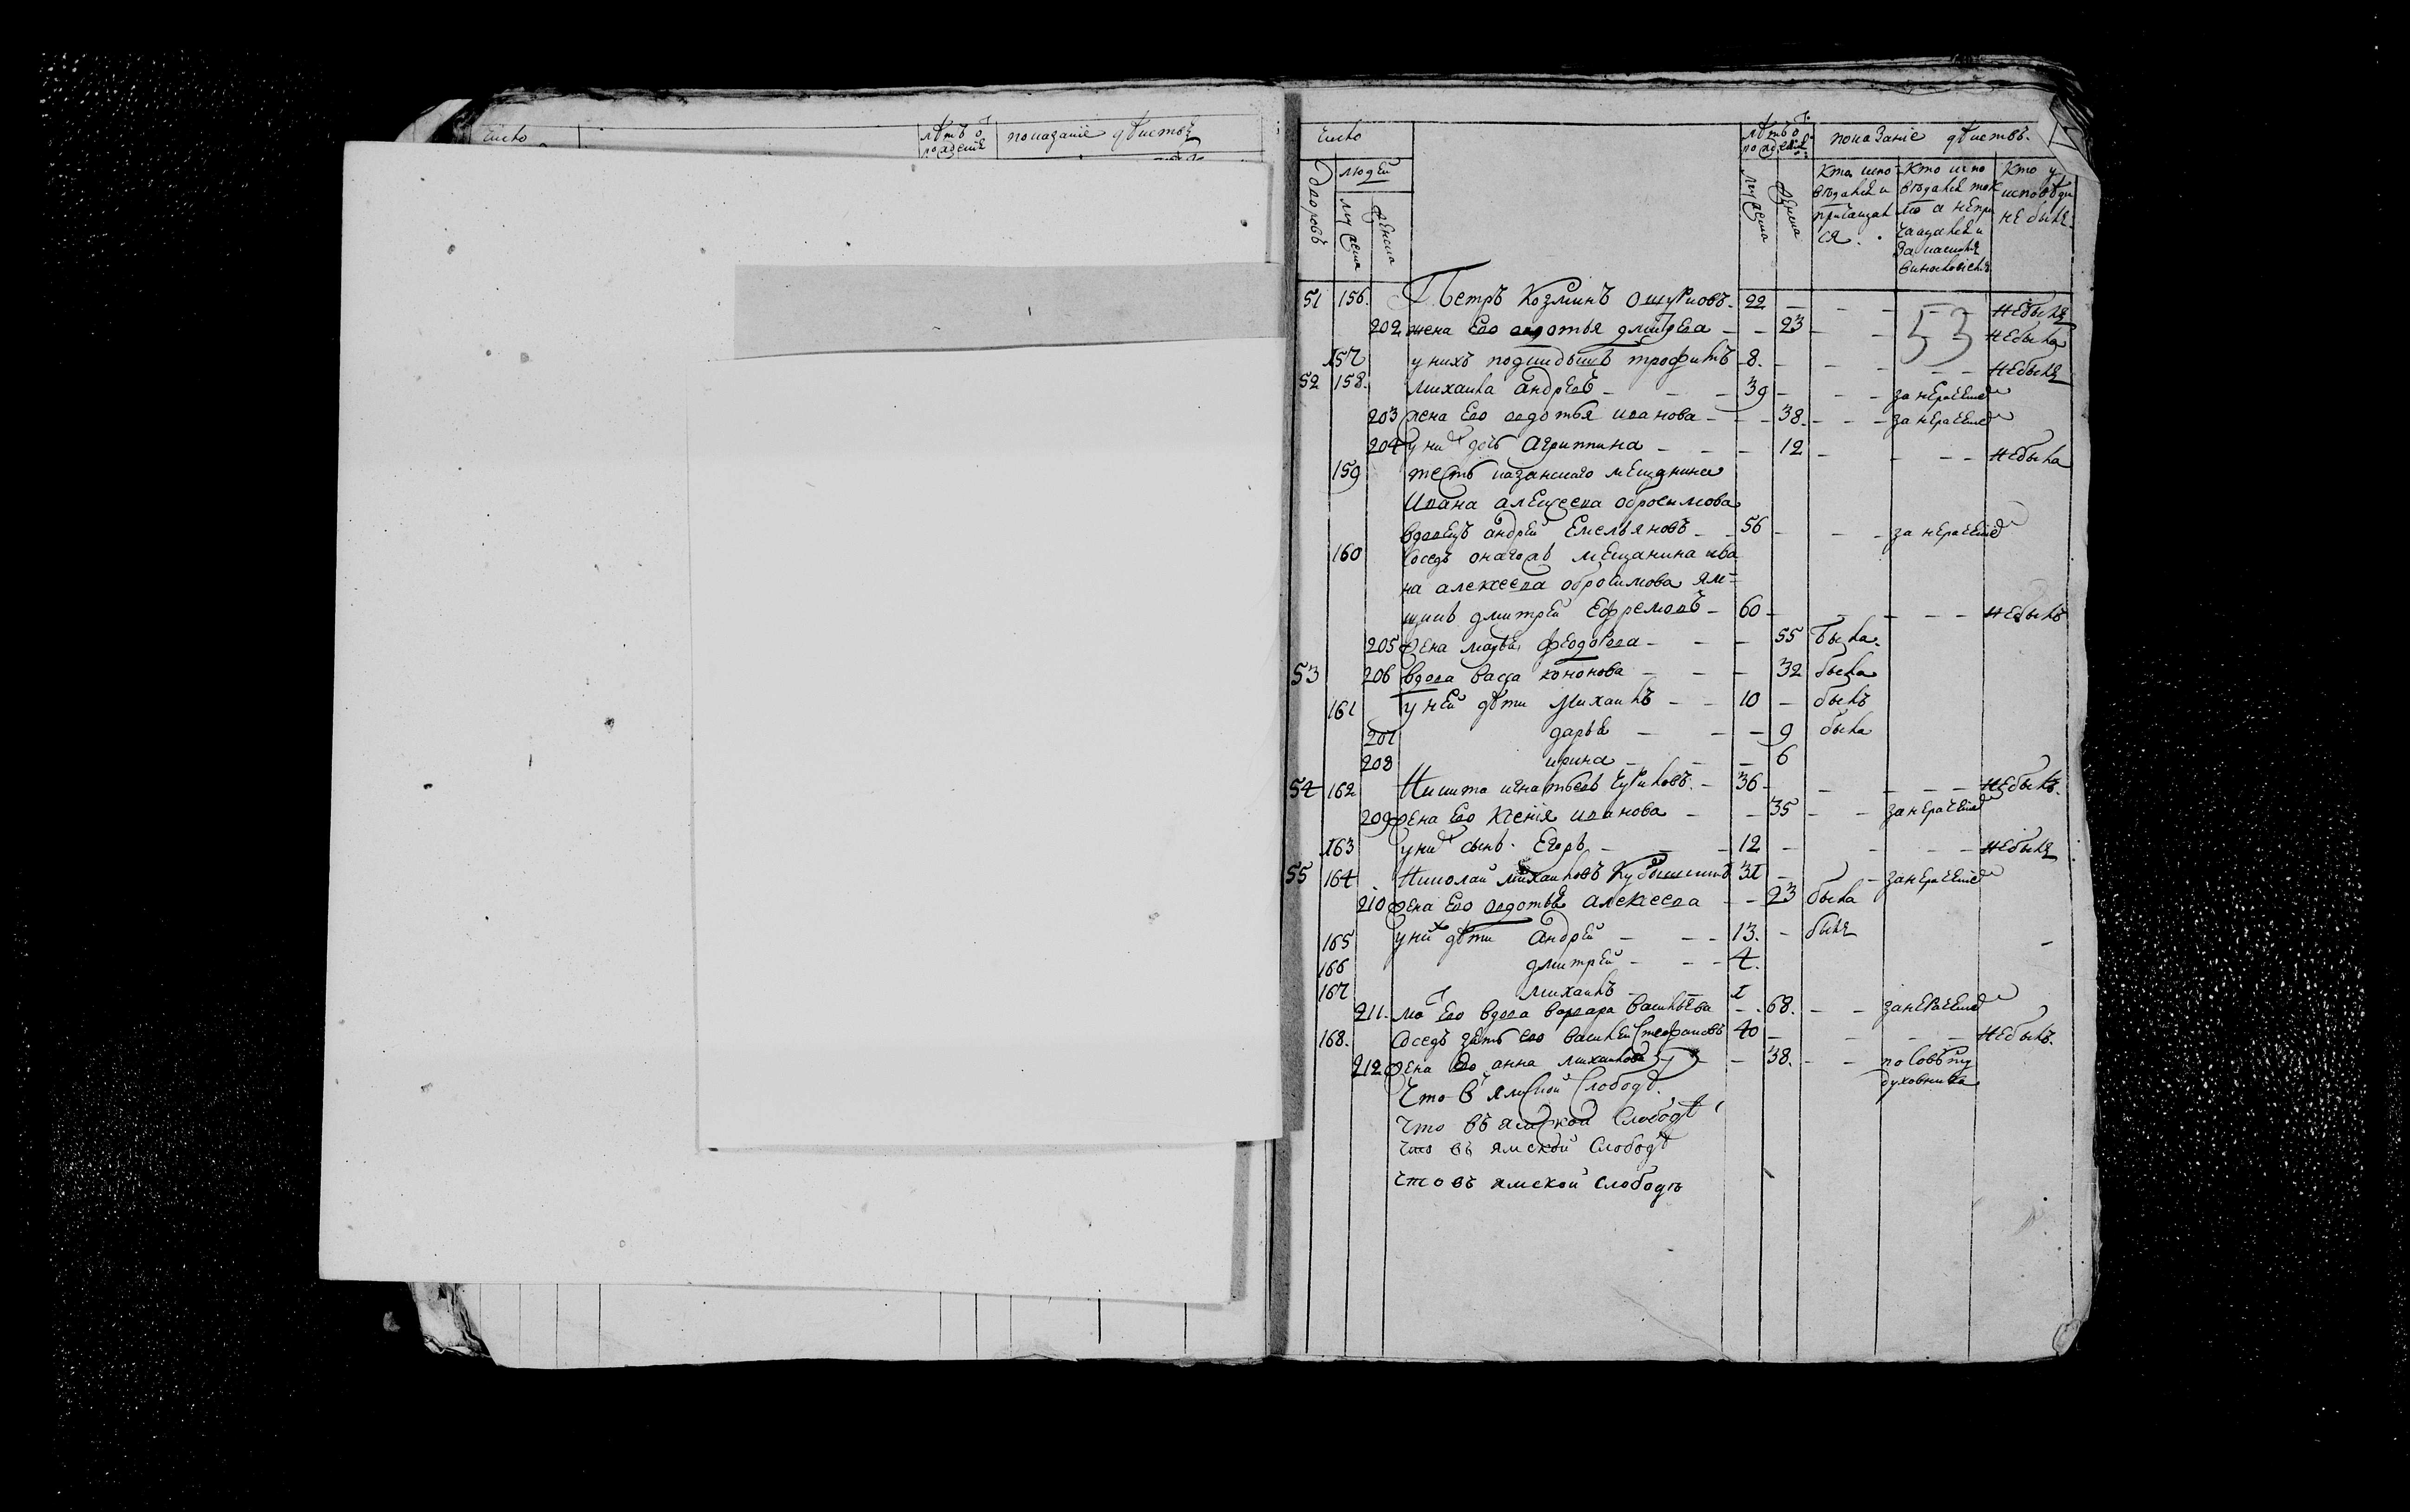 число
лѣтъ о
рожденіе
показаніе дѣиствъ
число
лѣтъ о
рожденіе
показаніе дѣиствъ
дворовъ
людей
мужеска
женска
мужеска
женска
Кто испо
вѣдался и
причащал
ся
Кто испо
вѣдался ток
мо а не при
чащался и
за какимъ
Кто у
исповѣди
не былъ
53
51 156. Петръ Козминъ 22 – – – небылъ
202 жена Его авдотья дмитрева – – 23 – – небыла
157 у нихъ трофимъ 8. – – – небылъ
52 158. михаила андреевъ – – 39 – – – за нерачениемъ
203 жена Его авдотья иванова – – – 38. – – – за нерачениемъ
204 у них дочь Агриппина – – – 12 – – – небыла
159 тесть казанскаго мещанина
Ивана алексеева обросимова
вдовецъ андрей Емельяновъ – 56 – – – за нерачением
160 соседъ онагожъ мещанина ива
на алексеева обросимова ям-
щикъ дмитрей Ефремовъ – 60 – – – – – небылъ
205 жена марва феодорова – – – 55 была.
53 206 вдова васса кононова – – – 32 была
161 у ней дѣти Михаилъ – – 10 – былъ
207 дарья – – – 9 была
208 ирина – – – 6
54 162 Никита игнатьевъ – 36 – – – – – небылъ.
209 жена Его Ксенія иванова – – 35 – – за нерачением
163 у них сынъ Егоръ – – – 12 – – – – небылъ
55 164 Николай михаиловъ 31 – – за нерачением
210 жена Его авдотья алексеева – – 23 была
165 у них дѣти Андрей – – – 13. – былъ
166 дмитрей – – – 4.
167 михаилъ – – 1
211. мать Его вдова варвара васильева – . 68. – – за нерачением
168. Соседъ зять его василей стефановъ 40 – – – – – небылъ.
212 жена Его анна михаилова – – 38. – – по совѣту
духовника
Что в ямской Слободѣ.
что въ ямской Слободѣ
что въ ямской Слободѣ
что въ ямской слободѣ